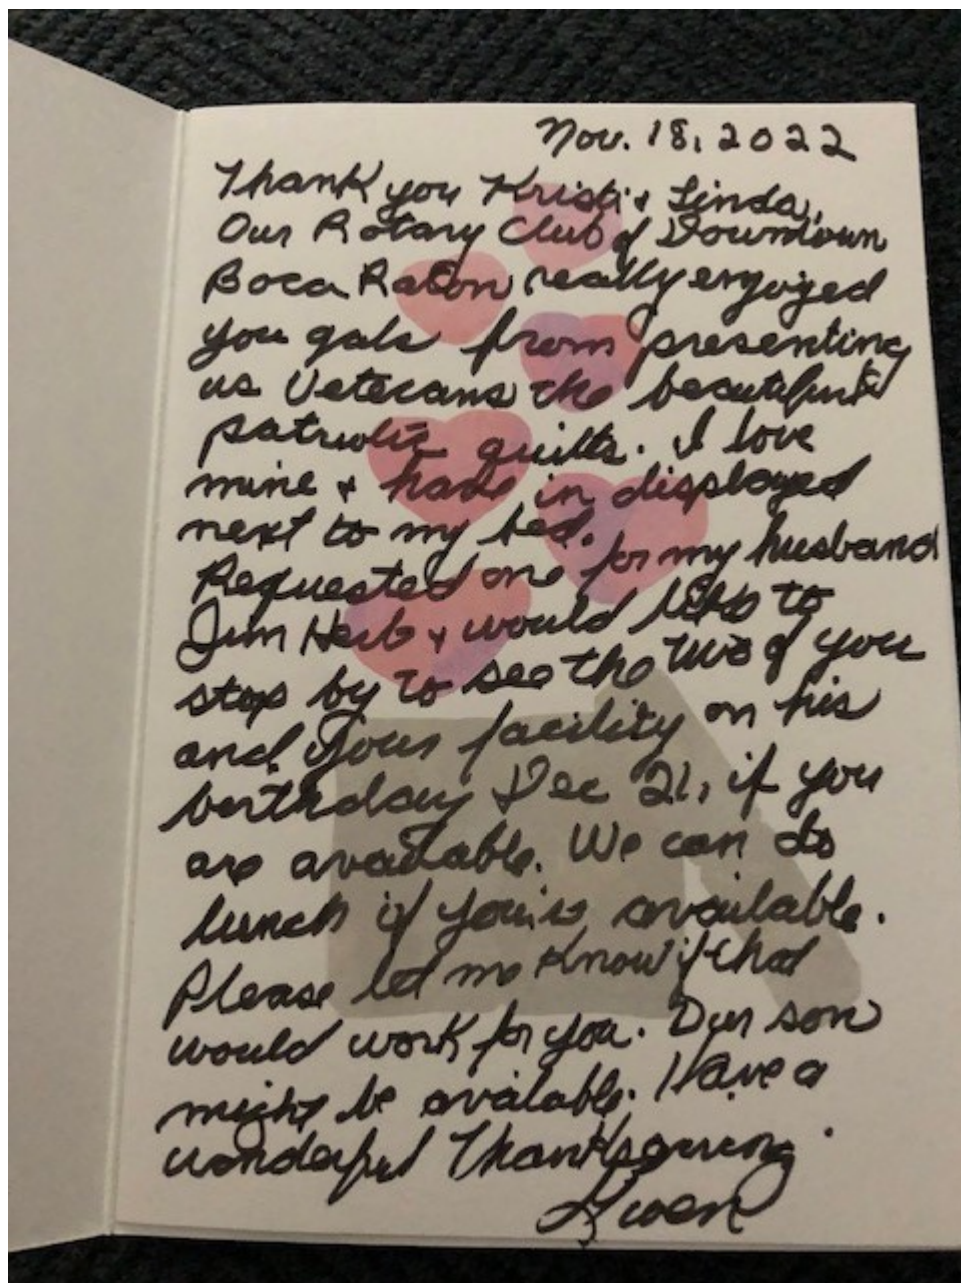 Nov. 18, 2022
Thank you Kristi & Linda,
Our Rotary Club of Downtown
Boca Raton really enjoyed
you gals from presenting
us Veterans the beautiful
patriotic quilts. I love
mine & have in displayed
next to my bed.
Requested one for my husband
Jim Herb & would like to
stop by to see the two of you
and your facility on his
birthday Dec 21, if you
are available. We can do
lunch if you're available.
Please let me know if that
would work for you. Our son
might be available. Have a
wonderful Thanksgiving.
Gwen